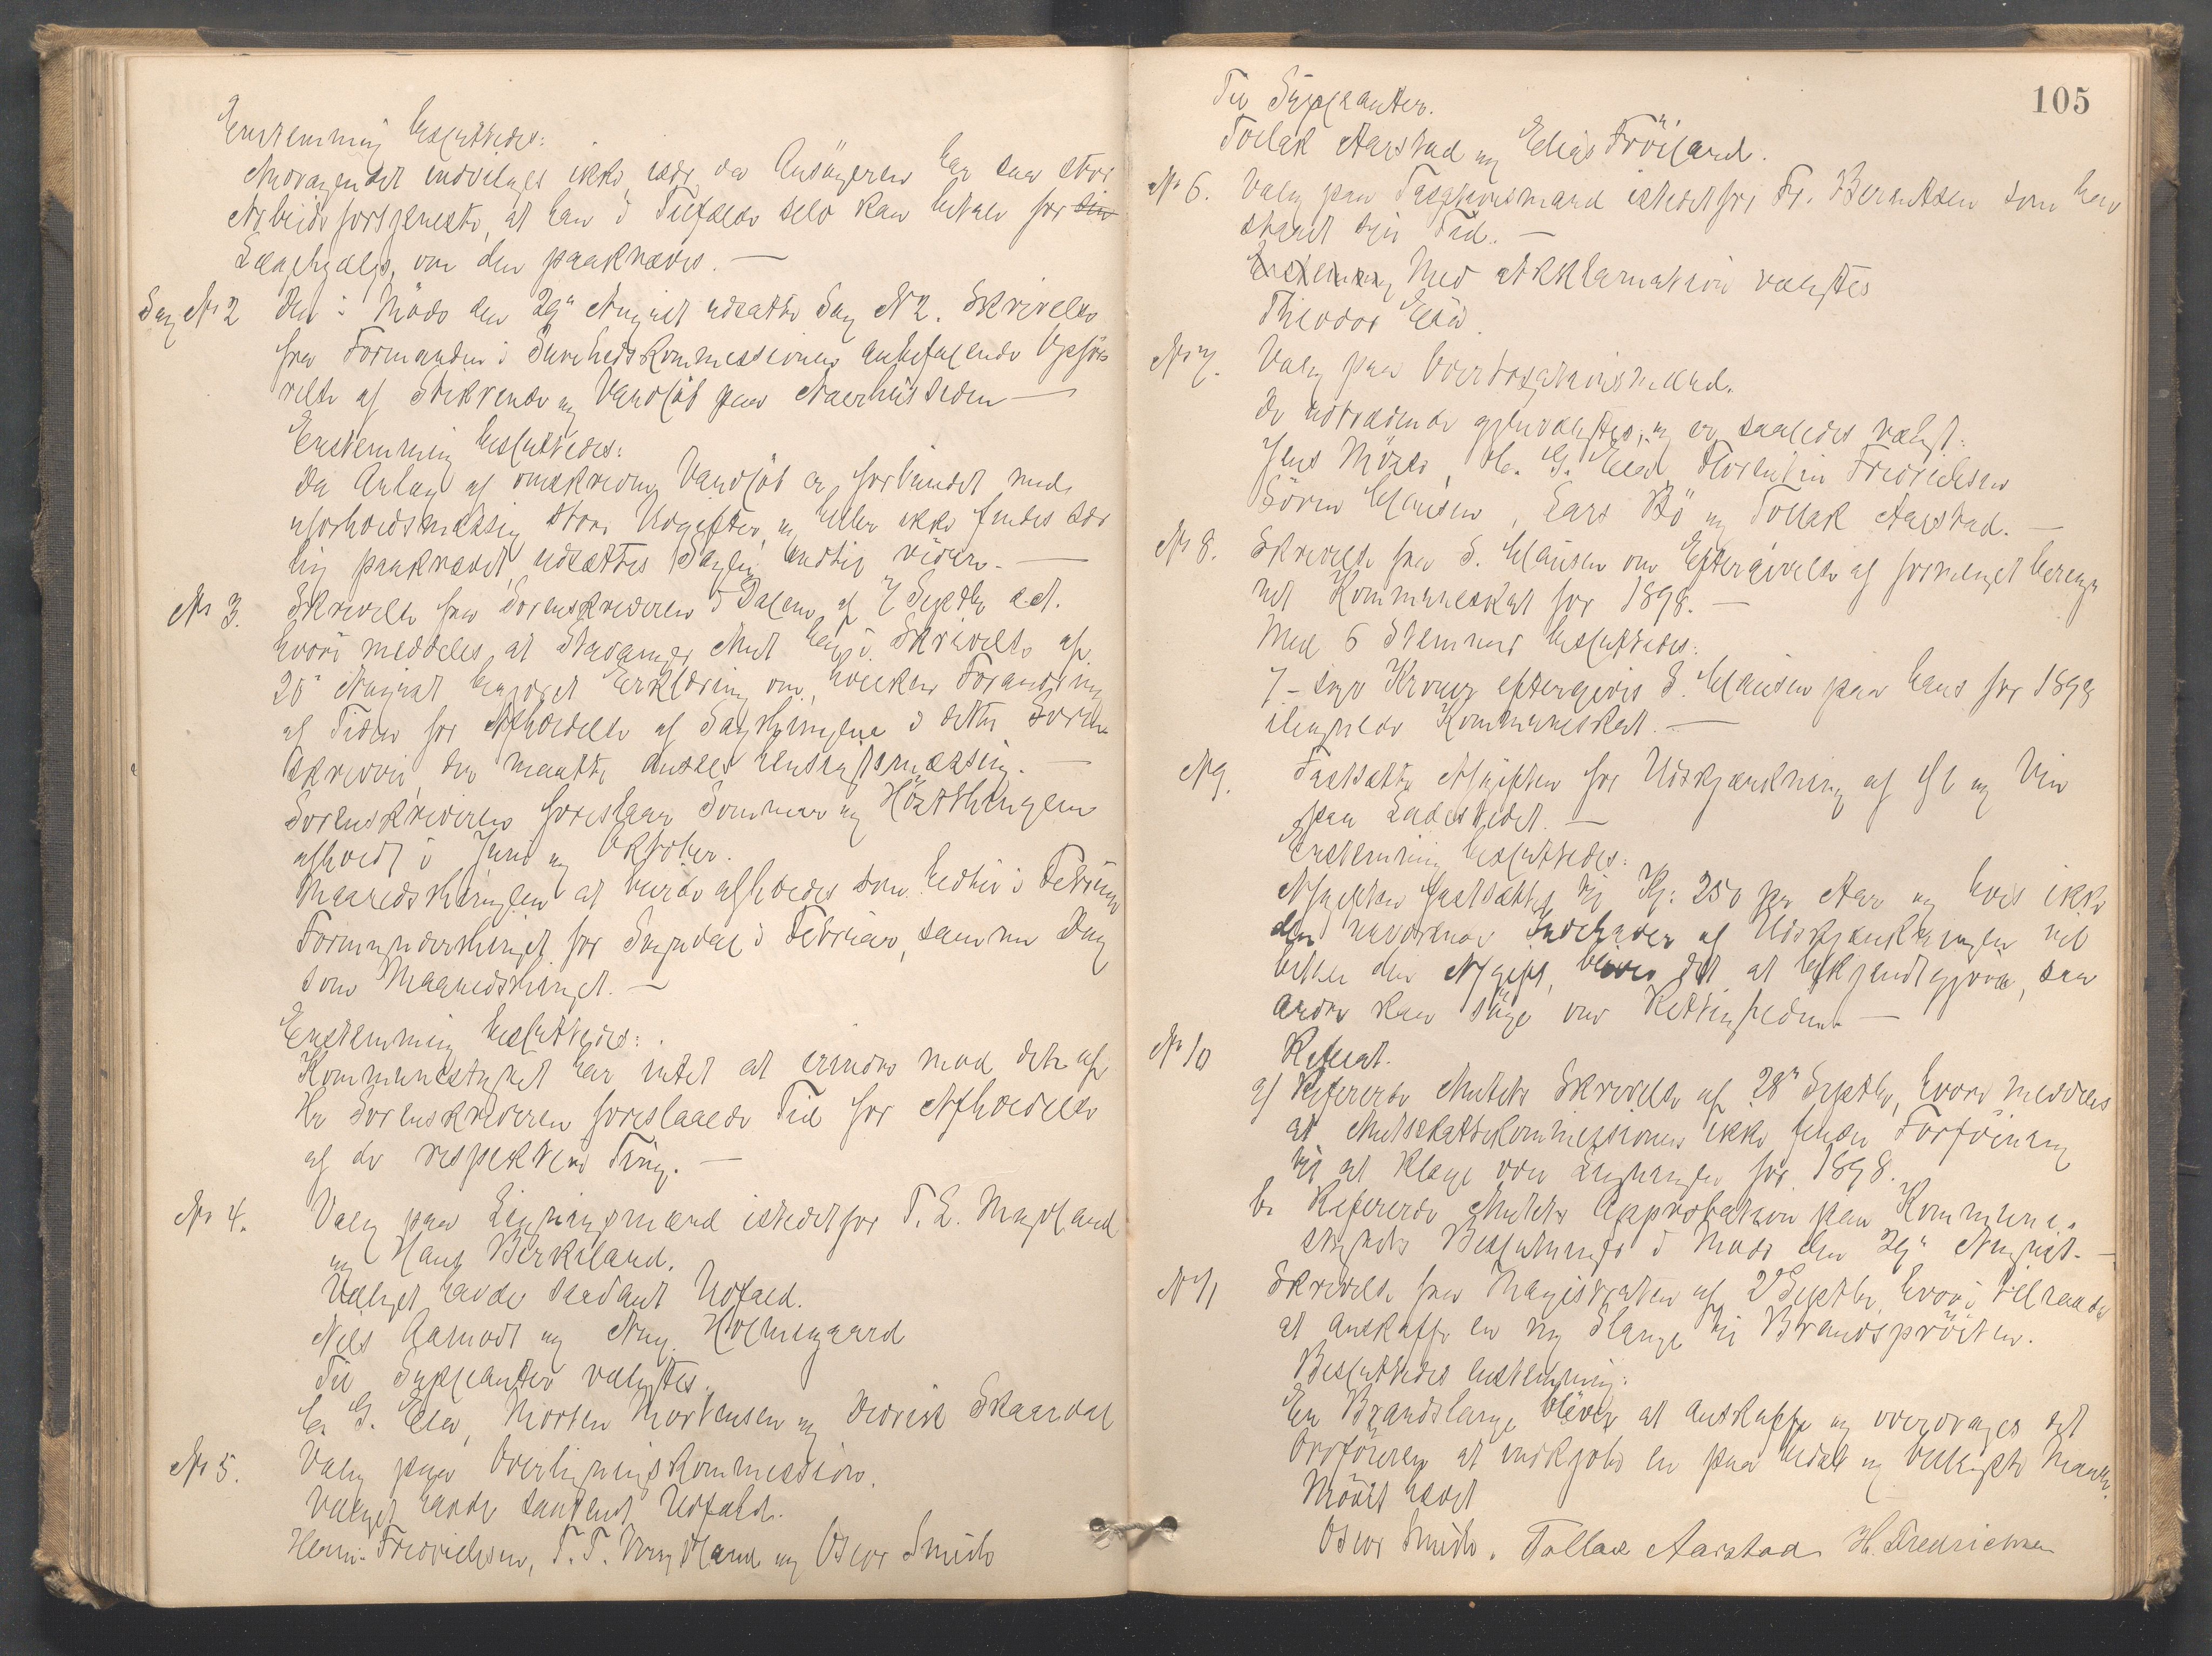 Enstemmig besluttedes:
Andragendet indvilges ikke, da Ansøgeren har saa stor
Arbeidsfortjeneste, at han i Tilfælde selv kan betale for sin
Lægehjælp, om den paakræves. —
Sag No 2 Den i Møde den 29de August udsatte Sag No 2. Skrivelse
fra Formanden i Sundhedskommissionen anbefalende Opfør-
else af Rekvende og Vandløb paa Aaerhusheien —
Enstemmig besluttedes:
Da Anlæg af omskrevne Vandløb er forbundet med
uforholdsmæssig store Udgifter, og heller ikke findes sær-
lig paakrævet, udsættes Sagen indtil videre. —
No 3. Skrivelse fra Sorenskriveren i Dalene af 7 Septbr d.A.
hvori meddeles, at Stavanger Amt har i Skrivelse af
20de August begjæret Erklæring om, hvilken Forandring
af Tiden for Afholdelse af Sagthingene i dette Soren-
skriveri, der maatte ansees hensigtsmæssig. —
Sorenskriveren foreslaar Sommer og Høstthingene
afholdt i Juni og Oktober.
Maanedsthingene at burde afholdes som hedtil i Februar
Formynderthinget for Sogndal i Februar, samme Dag
som Maanedsthinget. —
Enstemmig besluttedes:
Kommunestyret har intet at erindre mod den af
Hr Sorenskriveren foreslaaede Tid for Afholdelse
af de respektive Ting. —
No 4. Valg paa Ligningsmænd istedetfor T. L. Mydland
og Hans Birkeland.
Valget havde saadant Udfald.
Nils Aamodt og Aug. Holmegaard
Til Suppleanter valgtes
C. G. Eia, Morten Mortensen og Didrik Skaardal
No 5. Valg paa Overligningskommission.
Valget havde saadant Udfald.
Henr. Fredrichsen, T. T. Mydland og Oscar Smith
105
Til Suppleanter.
Tollak Aarstad og Elias Frøiland.
No 6. Valg paa Taxationsmand istedetfor Fr. Berentsen som har
staaet sin Tid. —
Enstemmig Med Akklamation valgtes
Theodor Eia.
No 7. Valg paa Overtaxationsmænd.
De udtrædende gjenvalgtes, og er saaledes valgt:
Jens Mözes, H. G. Eia, Florentin Fredrichsen
Sören Clausen, Lars Bö og Tollak Aarstad. —
No 8. Skrivelse fra S. Clausen om Eftergivelse af formenget bereg-
net Kommuneskat for 1898. —
Med 6 Stemmer besluttedes:
7 – syv Kroner eftergives S. Clausen paa hans for 1898
ilignede Kommuneskat. —
No 9. Fastsatte Afgiften for Udskjænkning af Øl og Vin
paa Ladestedet. —
Enstemmig besluttedes:
Afgiften fastsættes til Kr: 250 pr Aar og hvis ikke
den nuværende Indehaver af Udskjænkningen vil
betale den Afgift, bliver det at bekjendtgjøre, saa
andre kan søge om Rettigheden. —
No 10 Referat.
a) Refererte Amtets Skrivelse af 28de Septbr, hvori meddeles
at Amtsskattekommissionen ikke finder Forføining
til at klage over Ligningen for 1898.
b. Refererte Amtets Approbation paa Kommune-
styrets Beslutninger i Møde den 29de August. —
No 11 Skrivelse fra Magistraten af 2 Septbr, hvori tilraades
at anskaffe en ny Slange til Brandsprøiten.
Besluttedes enstemmig:
En Brandslange bliver at anskaffe og overdrages det
Ordføreren at indkjøbe en paa bedst og billigste Maade.
Mödet hævet
Oscar Smith. Tollak Aarstad H. Fredrichsen